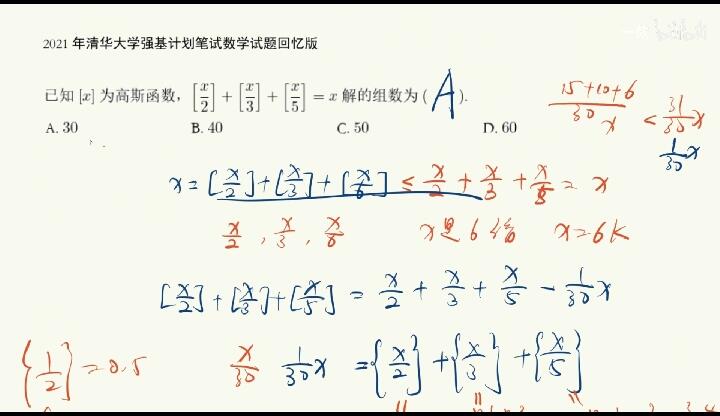 2021 年清华大学强基计划笔试数学试题回忆版
已知 [x] 为高斯函数，[x/2] + [x/3] + [x/5] = x 解的组数为 ( A ).
A. 30 B. 40 C. 50 D. 60
(15+10+6)/30 x < 31/30 x
1/30 x
x = [x/2] + [x/3] + [x/6] ≤ x/2 + x/3 + x/6 = x
x/2 , x/3 , x/6 x是6倍 x=6k
[x/2] + [x/3] + [x/5] = x/2 + x/3 + x/5 - 1/30 x
{1/2} = 0.5 x/30 1/30 x = {x/2} + {x/3} + {x/5}